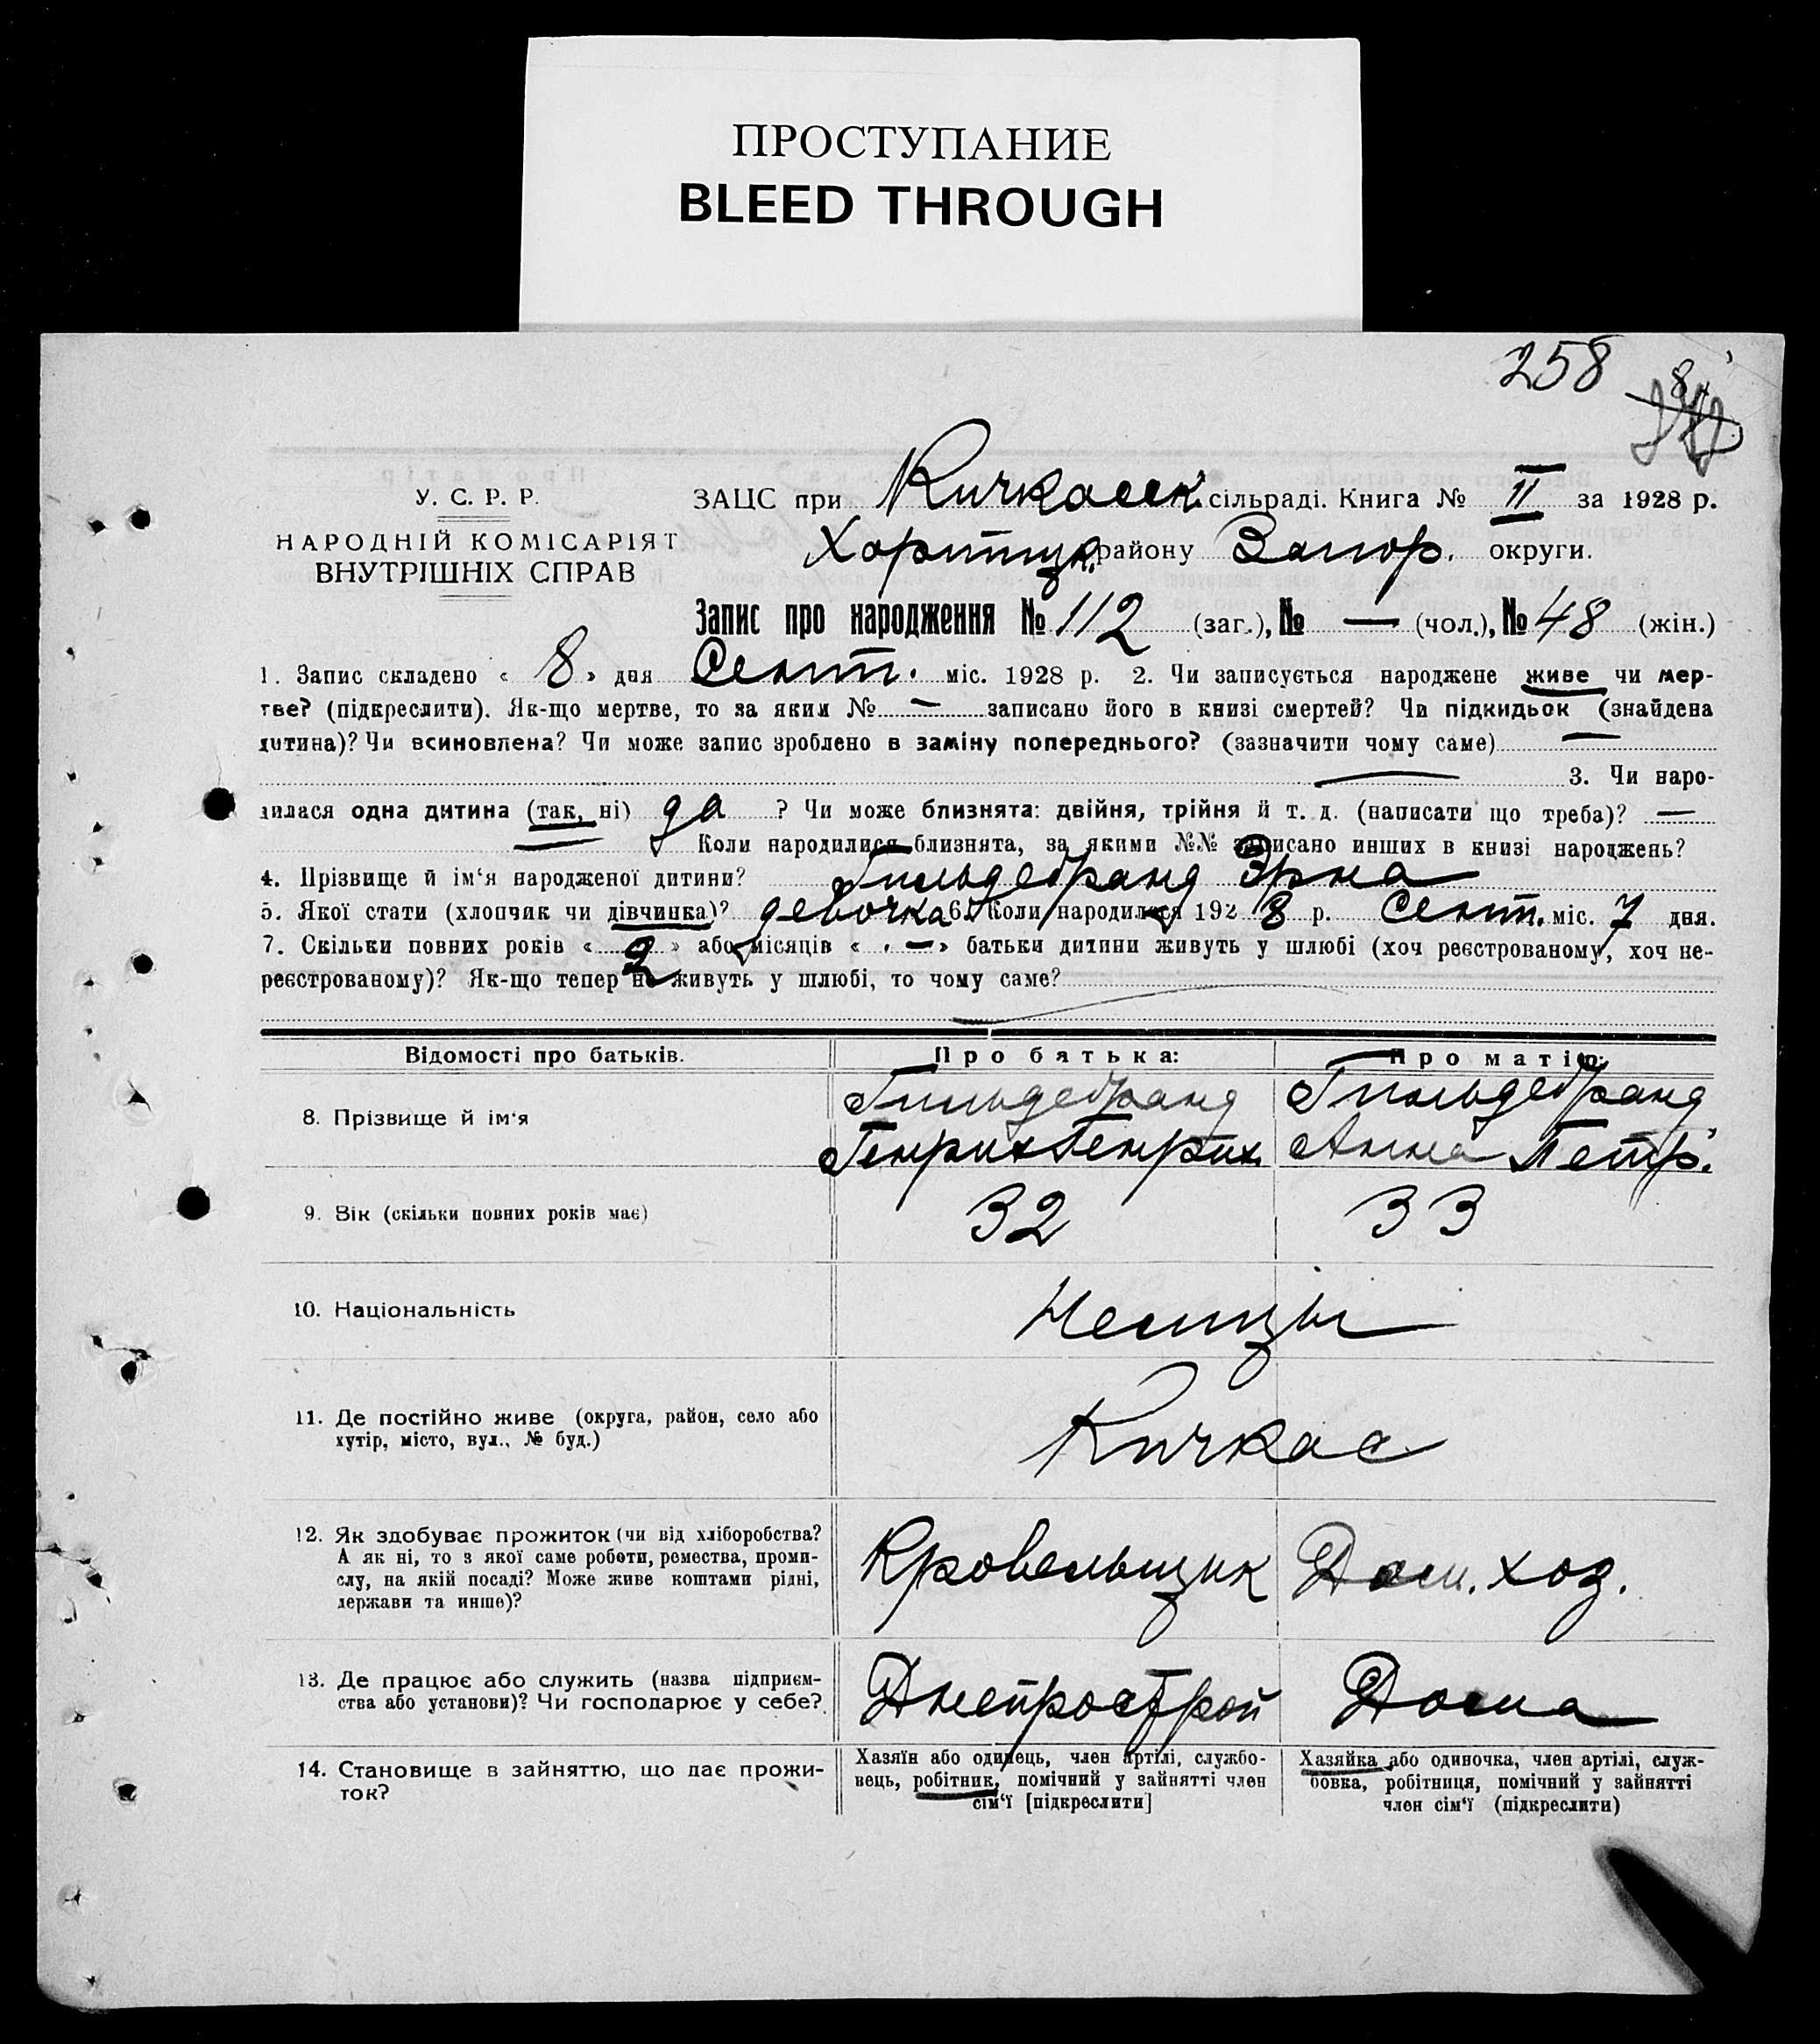 ПРОСТУПАНИЕ
BLEED THROUGH
258
У. С. Р. Р.
НАРОДНІЙ КОМІСАРІЯТ
ВНУТРІШНІХ СПРАВ
ЗАЦС при Кичкасск. сільраді. Книга № II за 1928 р.
Хортицк. району Запор. округи.
Запис про народження № 112 (заг.), № — (чол.), № 48 (жін.)
1. Запис складено « 8 » дня Сент. міс. 1928 р. 2. Чи записується народжене живе чи мер-
тве? (підкреслити). Як-що мертве, то за яким № — записано його в книзі смертей? Чи підкидьок (знайдена
дитина)? Чи всиновлена? Чи може запис зроблено в заміну попереднього? (зазначити чому саме) —
— 3. Чи наро-
дилася одна дитина (так, ні) да ? Чи може близнята: двійня, трійня й т. д. (написати що треба)? —
— Коли народилися близнята, за якими №№ записано инших в книзі народжень? —
4. Прізвище й ім‘я народженої дитини? Гильдебранд Эрна
5. Якої стати (хлопчик чи дівчинка)? девочка 6. Коли народилася 1928 р. Сент. міс. 7 дня.
7. Скільки повних років « 2 » або місяців « — » батьки дитини живуть у шлюбі (хоч реєстрованому, хоч не-
реєстрованому)? Як-що тепер не живуть у шлюбі, то чому саме?
Відомості про батьків. Про батька: Про матір:
8. Прізвище й ім‘я Гильдебранд Генрих Генрих. Гильдебранд Анна Петр.
9. Вік (скільки повних років має) 32 33
10. Національність Немцы
11. Де постійно живе (округа, район, село або
хутір, місто, вул., № буд.) Кичкас
12. Як здобуває прожиток (чи від хліборобства?
А як ні, то з якої саме роботи, ремества, проми-
слу, на якій посаді? Може живе коштами рідні,
держави та инше)? Кровельщик Дом. хоз.
13. Де працює або служить (назва підприєм-
ства або установи)? Чи господарює у себе? Днепрострой Дома
14. Становище в зайняттю, що дає прожи-
ток?
Хазяїн або одинець, член артілі, службо-
вець, робітник, помічний у зайнятті член
сім‘ї [підкреслити]
Хазяйка або одиночка, член артілі, служ-
бовка, робітниця, помічний у зайнятті
член сім‘ї (підкреслити)